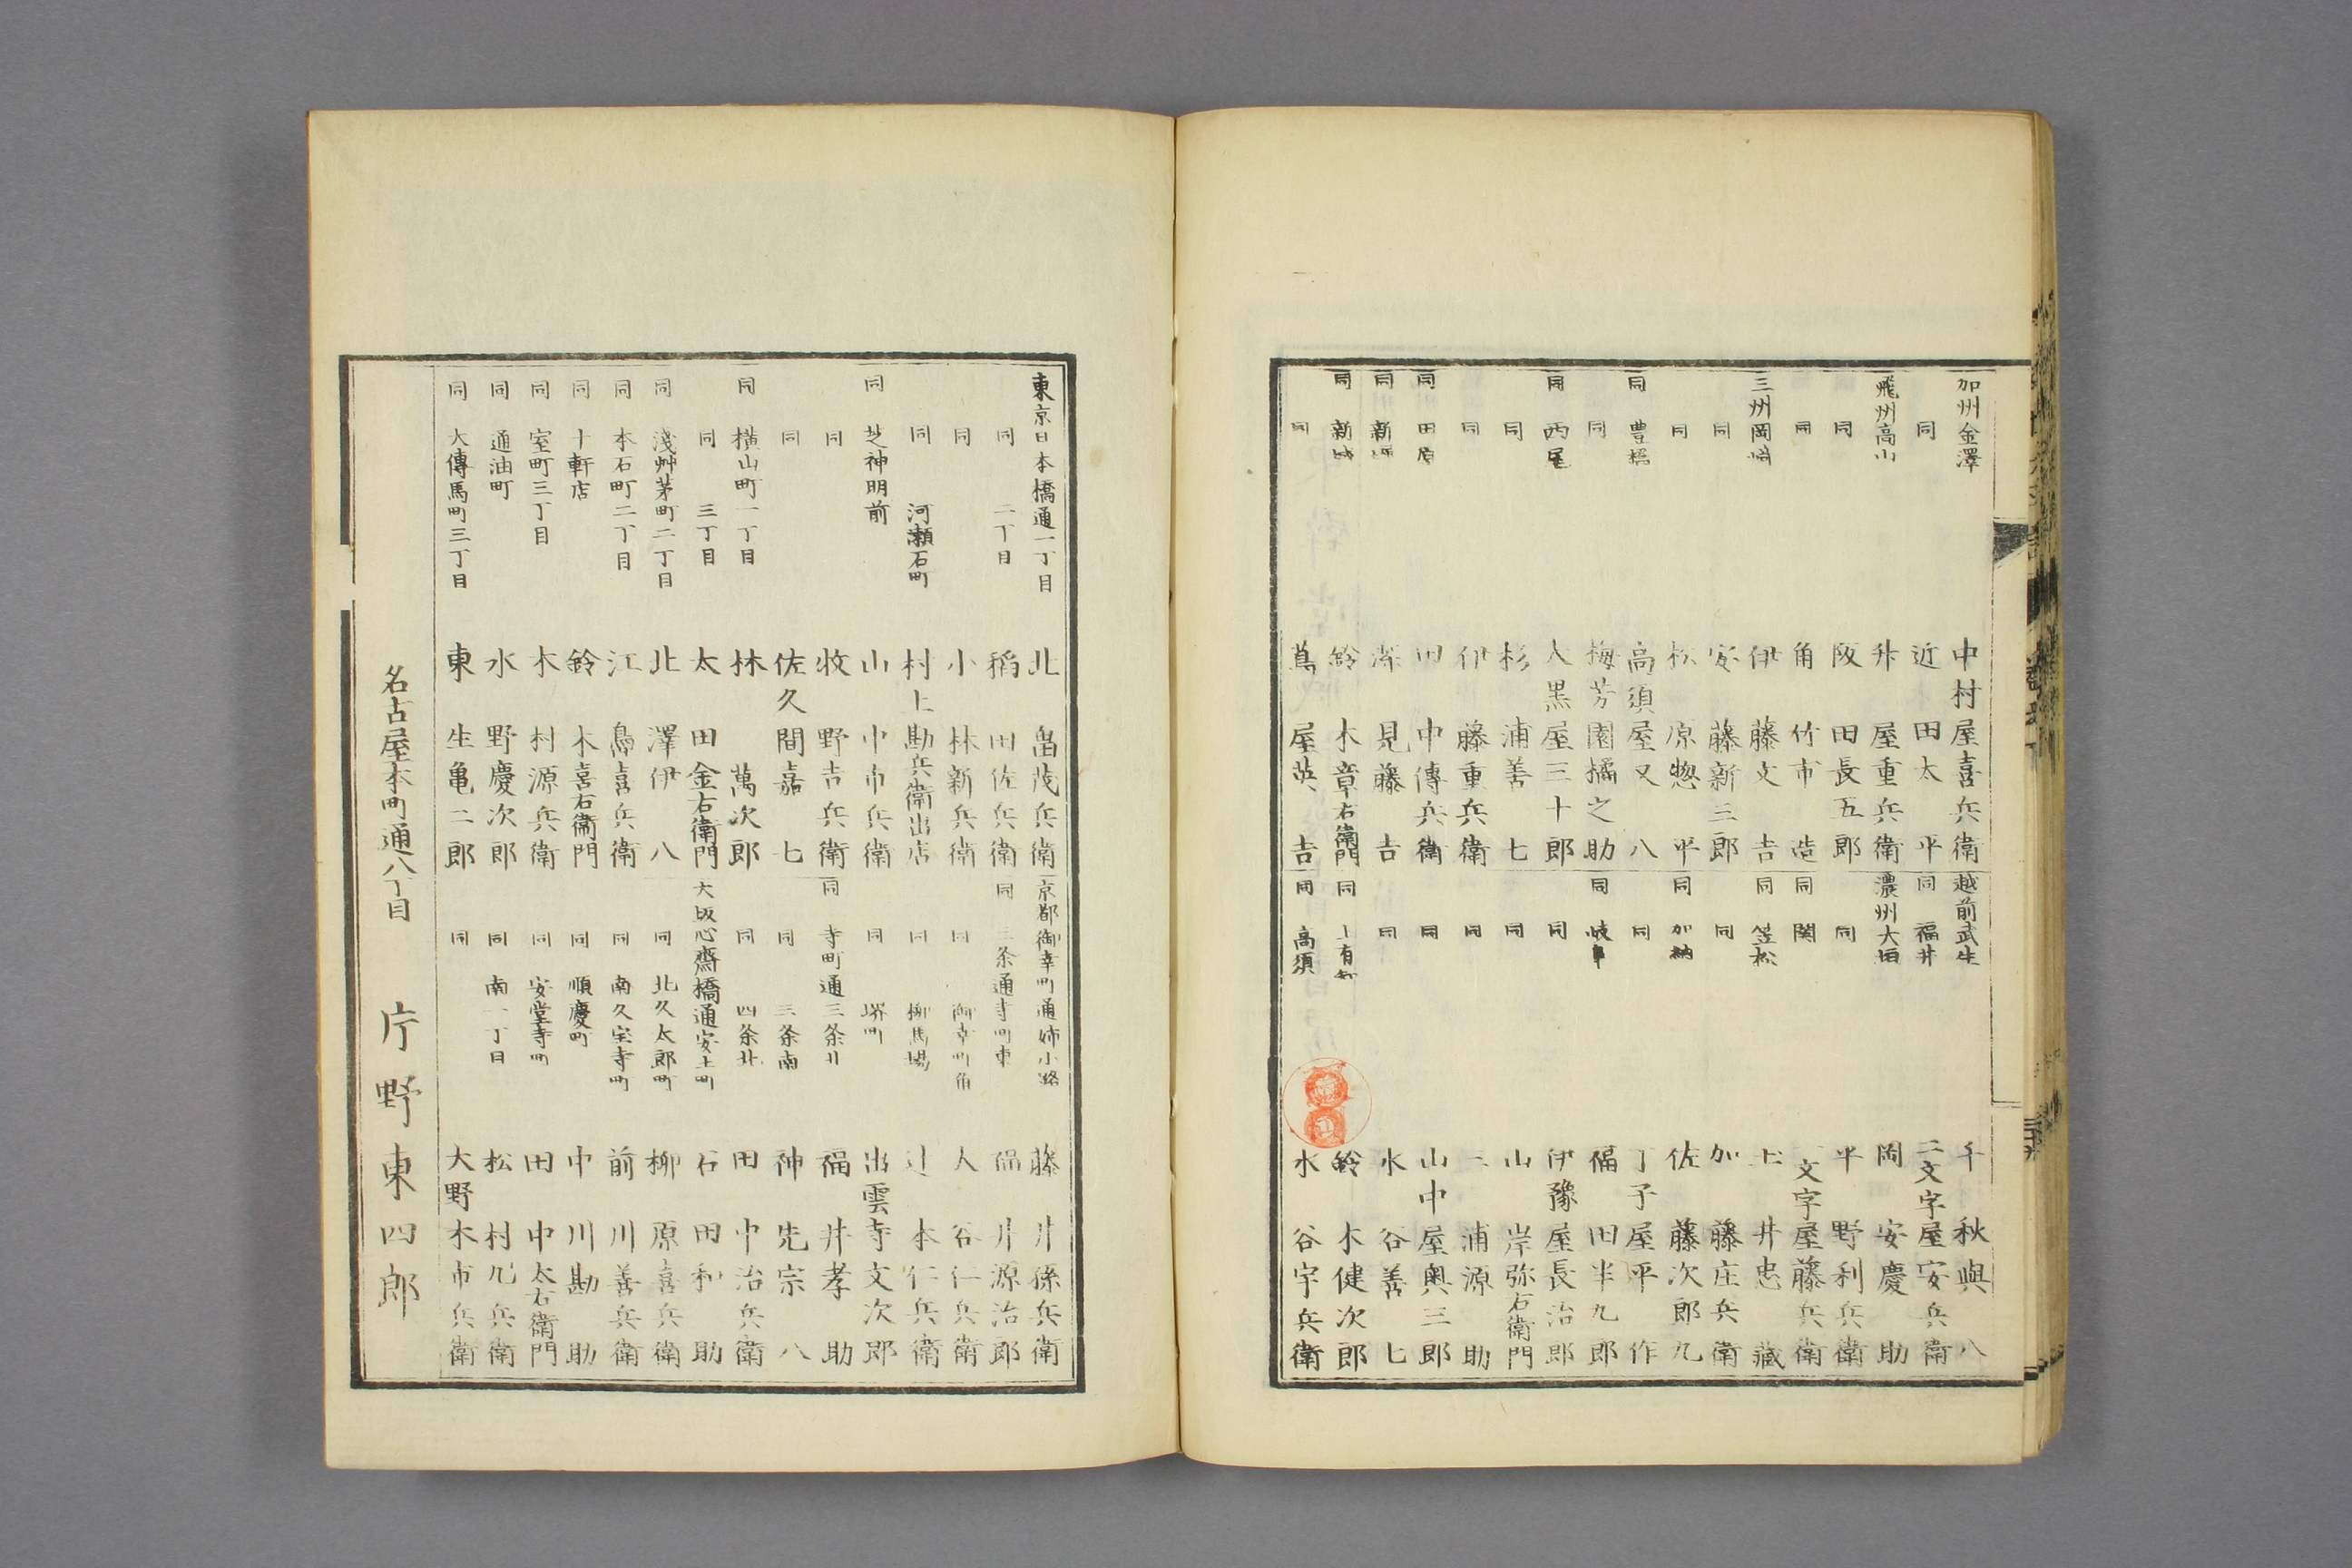 加州金澤 中村屋喜兵衛
同 近田太平
飛州高山 升屋重兵衛
同 阪田長五郎
同 角竹市造
三州岡崎 伊藤文吉
同 安藤新三郎
同 松原惣平
同 豊橋 高須屋又八
同 梅芳園橘之助
同 西尾 大黒屋三十郎
同 杉浦善七
同 伊藤重兵衛
同 田原 田中傳兵衛
同 新 深見藤吉
同 新城 鈴木章右衛門
同 蔦屋英吉
越前武生 千秋與八
同 福井 二文字屋安兵衛
濃州大垣 岡安慶助
同 平野利兵衛
同 関 文字屋藤兵衛
同 笠松 井忠藏
同 加藤庄兵衛
同 加納 佐藤次郎九
同 丁子屋平作
同 岐阜 福田半九郎
同 伊豫屋長治郎
同 山岸弥右衛門
同 三浦源助
同 山中屋奥三郎
同 水谷善七
同 上有知 鈴木健次郎
同 高須 水谷宇兵衛
東京日本橋通一丁目 北畠茂兵衛
同 二丁目 稲田佐兵衛
同 小林新兵衛
同 河瀬石町 村上勘兵衛出店
同 芝神明前 山中市兵衛
同 牧野吉兵衛
同 佐久間嘉七
同 横山町一丁目 林萬次郎
同 三丁目 太田金右衛門
同 淺艸茅町二丁目 北澤伊八
同 本石町二丁目 江島喜兵衛
同 十軒店 鈴木喜右衛門
同 室町三丁目 木村源兵衛
同 通油町 水野慶次郎
同 大傳馬町三丁目 東生亀二郎
京都御幸町通姉小路 藤井孫兵衛
同 三条通寺町東 福井源治郎
同 御幸町角 人谷仁兵衛
同 柳馬場 辻本仁兵衛
同 堺町 出雲寺文次郎
同 寺町通三条北 福井孝助
同 三条南 神先宗八
同 四条北 田中治兵衛
大坂心齋橋通安土町 石田和助
同 北久太郎町 柳原喜兵衛
同 南久宝寺町 前川善兵衛
同 順慶町 中川勘助
同 安堂寺町 田中太右衛門
同 南一丁目 松村九兵衛
同 大野木市兵衛
名古屋本町通八丁目 片野東四郎